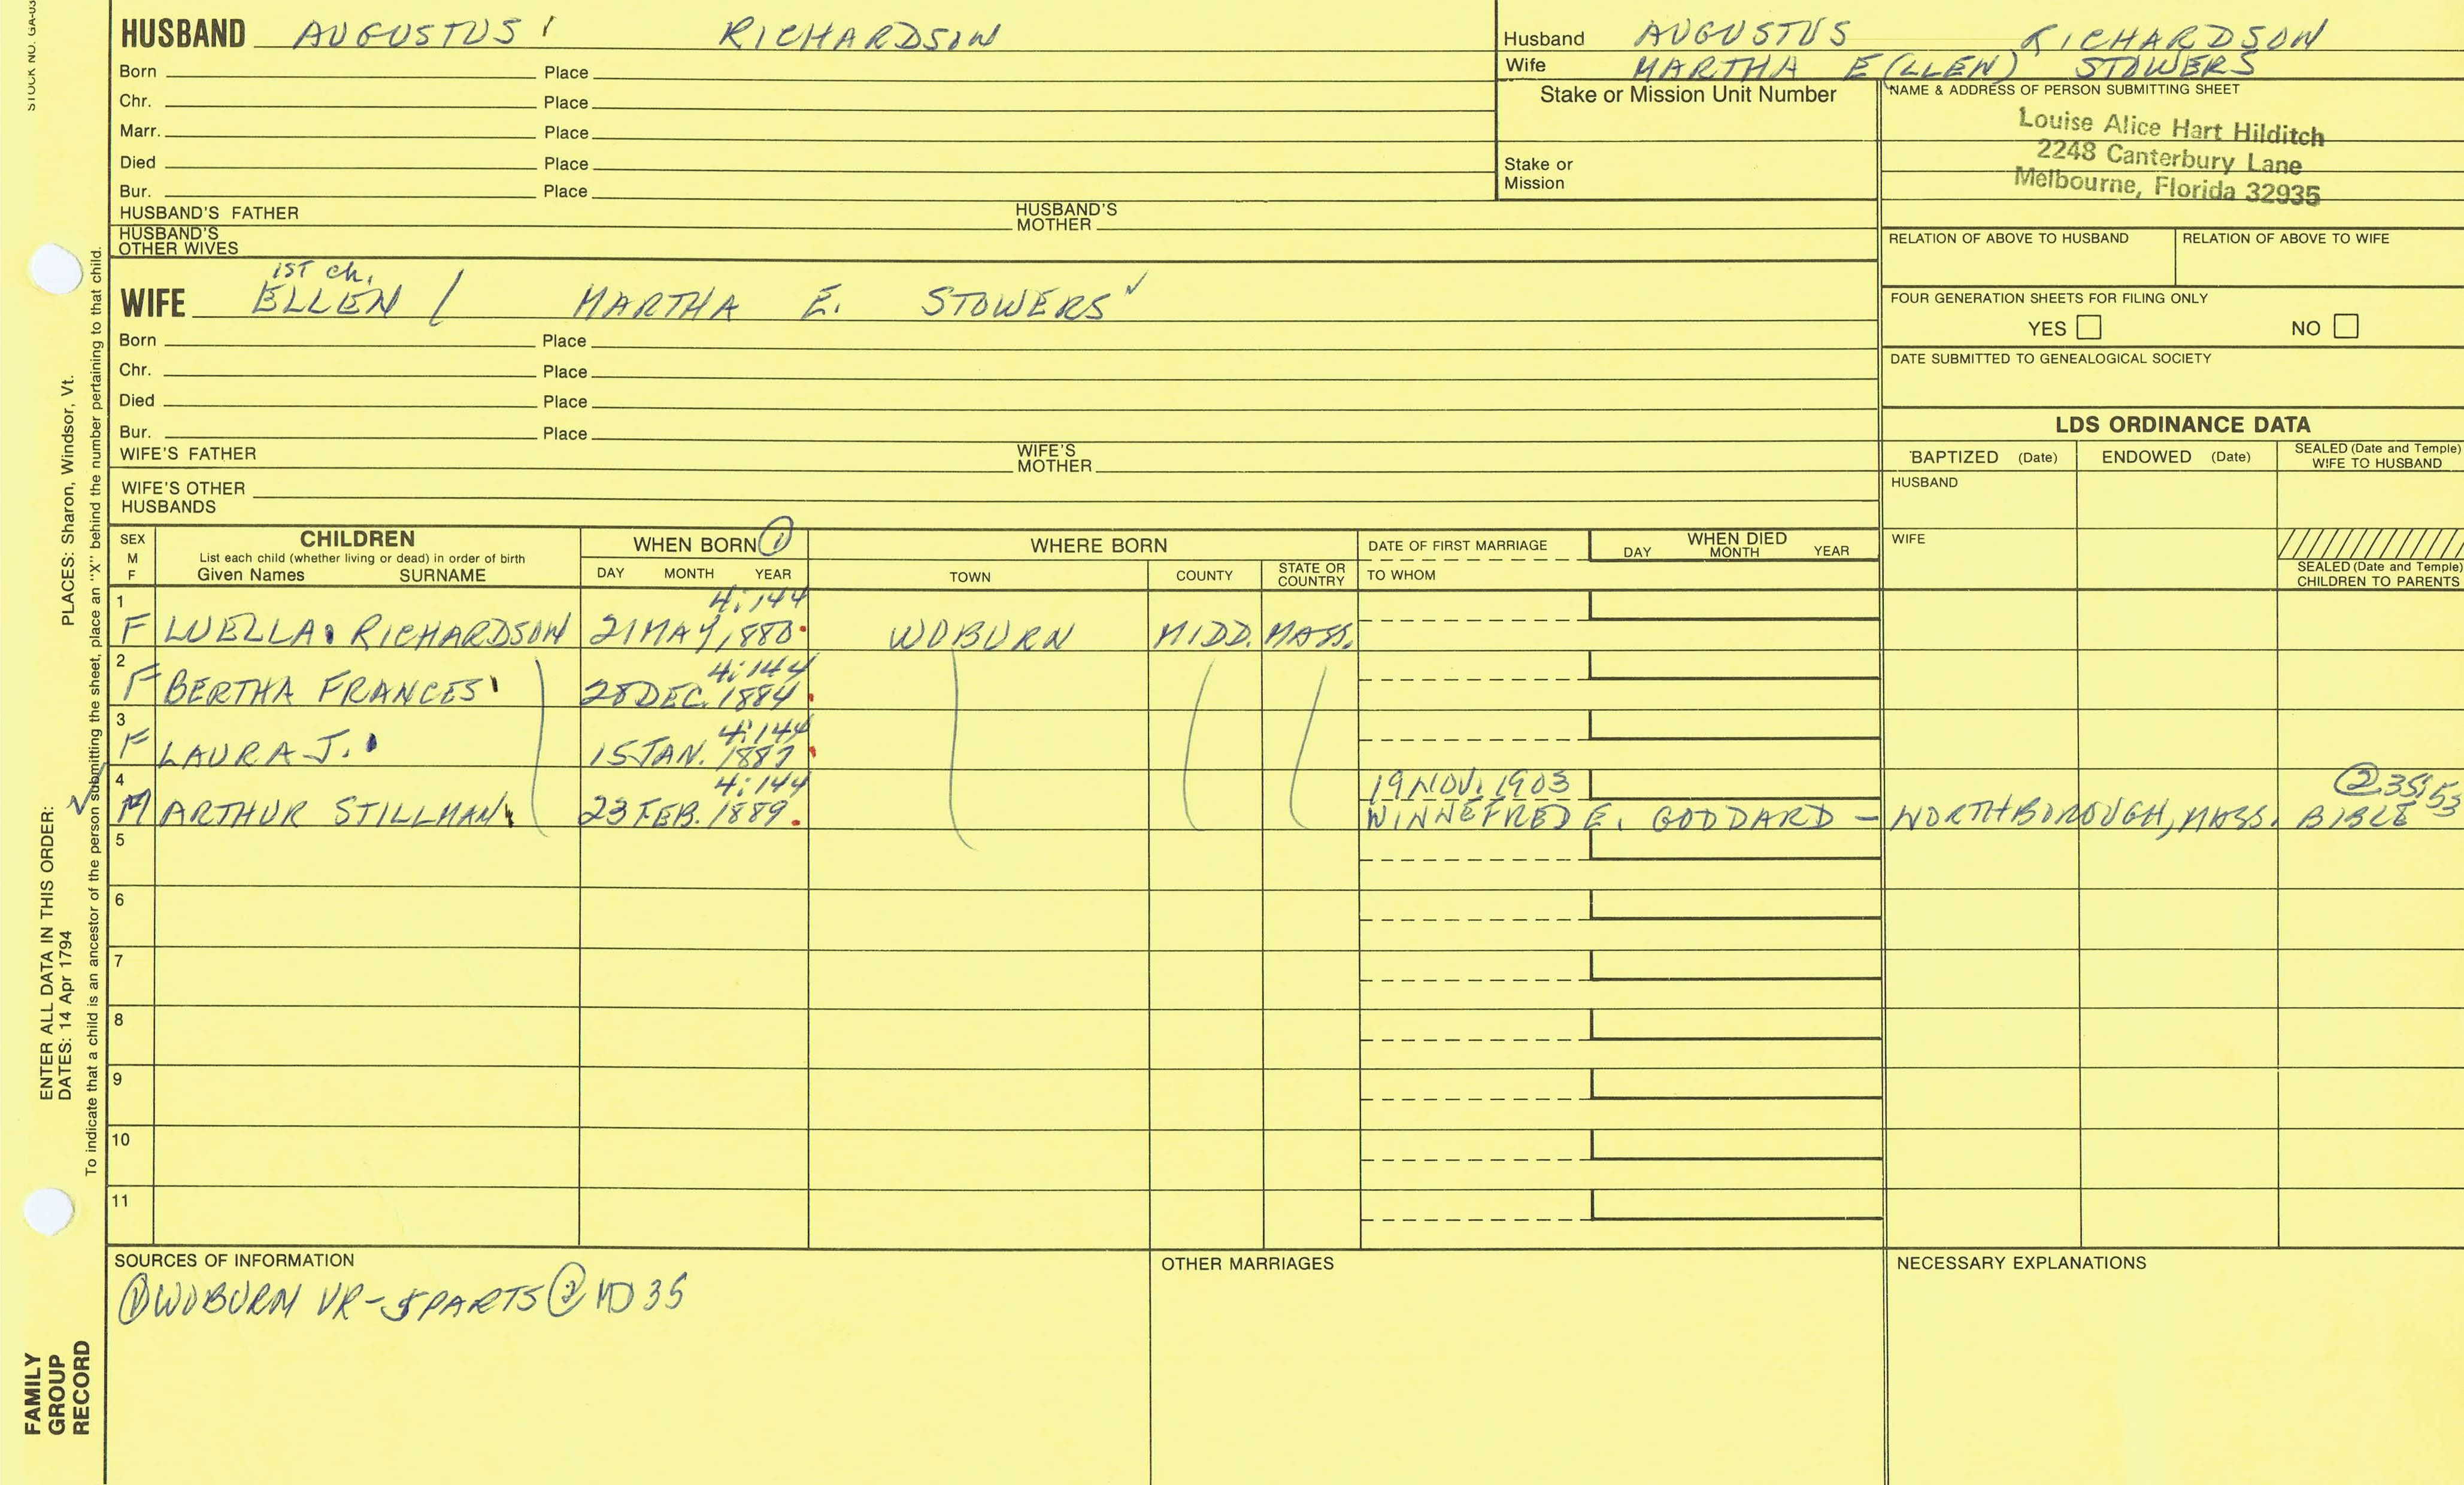 HUSBAND AUGUSTUS RICHARDSON
Born Place
Chr. Place
Marr. Place
Died Place
Bur. Place
HUSBAND'S FATHER HUSBAND'S MOTHER
HUSBAND'S OTHER WIVES
1ST ch.
WIFE ELLEN / MARTHA E. STOWERS
Born Place
Chr. Place
Died Place
Bur. Place
WIFE'S FATHER WIFE'S MOTHER
WIFE'S OTHER HUSBANDS
Husband AUGUSTUS RICHARDSON
Wife MARTHA E(LLEN) STOWERS
Stake or Mission Unit Number
Stake or Mission
NAME & ADDRESS OF PERSON SUBMITTING SHEET
Louise Alice Hart Hilditch
2248 Canterbury Lane
Melbourne, Florida 32935
RELATION OF ABOVE TO HUSBAND RELATION OF ABOVE TO WIFE
FOUR GENERATION SHEETS FOR FILING ONLY
YES NO
DATE SUBMITTED TO GENEALOGICAL SOCIETY
LDS ORDINANCE DATA
BAPTIZED (Date) ENDOWED (Date) SEALED (Date and Temple) WIFE TO HUSBAND
HUSBAND
WIFE
SEALED (Date and Temple) CHILDREN TO PARENTS
SEX M F
CHILDREN
List each child (whether living or dead) in order of birth
Given Names SURNAME
WHEN BORN ①
DAY MONTH YEAR
WHERE BORN
TOWN COUNTY STATE OR COUNTRY
DATE OF FIRST MARRIAGE
TO WHOM
WHEN DIED
DAY MONTH YEAR
1 4:144
F LUELLA RICHARDSON 21 MAY, 1880 WOBURN MIDD. MASS.
2 4:144
F BERTHA FRANCES 28 DEC. 1884
3 4:144
F LAURA J. 15 JAN. 1887
4 4:144 19 NOV. 1903 ② 35:53
M ARTHUR STILLMAN 23 FEB. 1889 WINNEFRED E. GODDARD — NORTHBOROUGH, MASS. BIBLE
5
6
7
8
9
10
11
SOURCES OF INFORMATION
① WOBURN VR-5 PARTS ② MD 35
OTHER MARRIAGES
NECESSARY EXPLANATIONS
PLACES: Sharon, Windsor, Vt.
ENTER ALL DATA IN THIS ORDER:
DATES: 14 Apr 1794
To indicate that a child is an ancestor of the person submitting the sheet, place an "X" behind the number pertaining to that child.
FAMILY
GROUP
RECORD